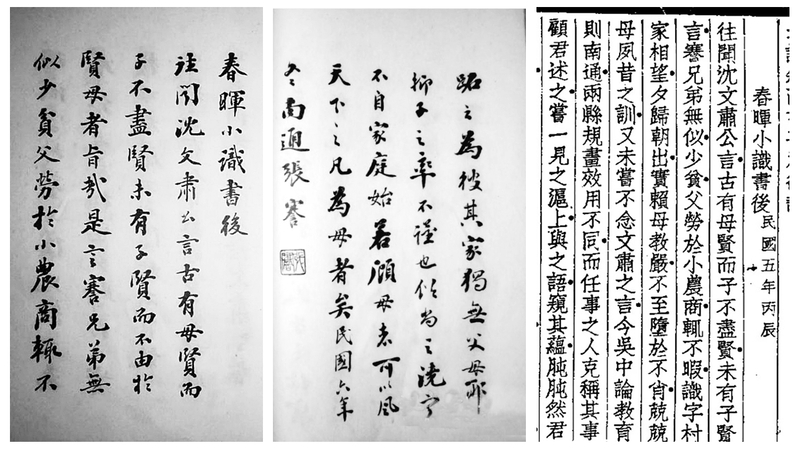 春暉小識書後
往聞沈文肅公言古有母賢而
子不盡賢未有子賢而不由於
賢母者旨哉是言謇兄弟無
似少貧父勞於小農商輒不
跖之為彼其家獨無父母耶
抑子之率不謹也俗尚之澆寧
不自家庭始若顧母者可以風
天下之凡為母者矣民國六年
冬南通張謇
春暉小識書後 民國五年丙辰
往聞沈文肅公言古有母賢而子不盡賢未有子賢
言謇兄弟無似少貧父勞於小農商輒不暇識字村
家相望夕歸朝出實賴母教嚴不至墮於不肖兢兢
母夙昔之訓又未嘗不念文肅之言今吳中論教育
則南通兩縣規畫效用不同而任事之人克稱其事
顧君述之嘗一見之滬上與之語窺其蘊肫肫然君